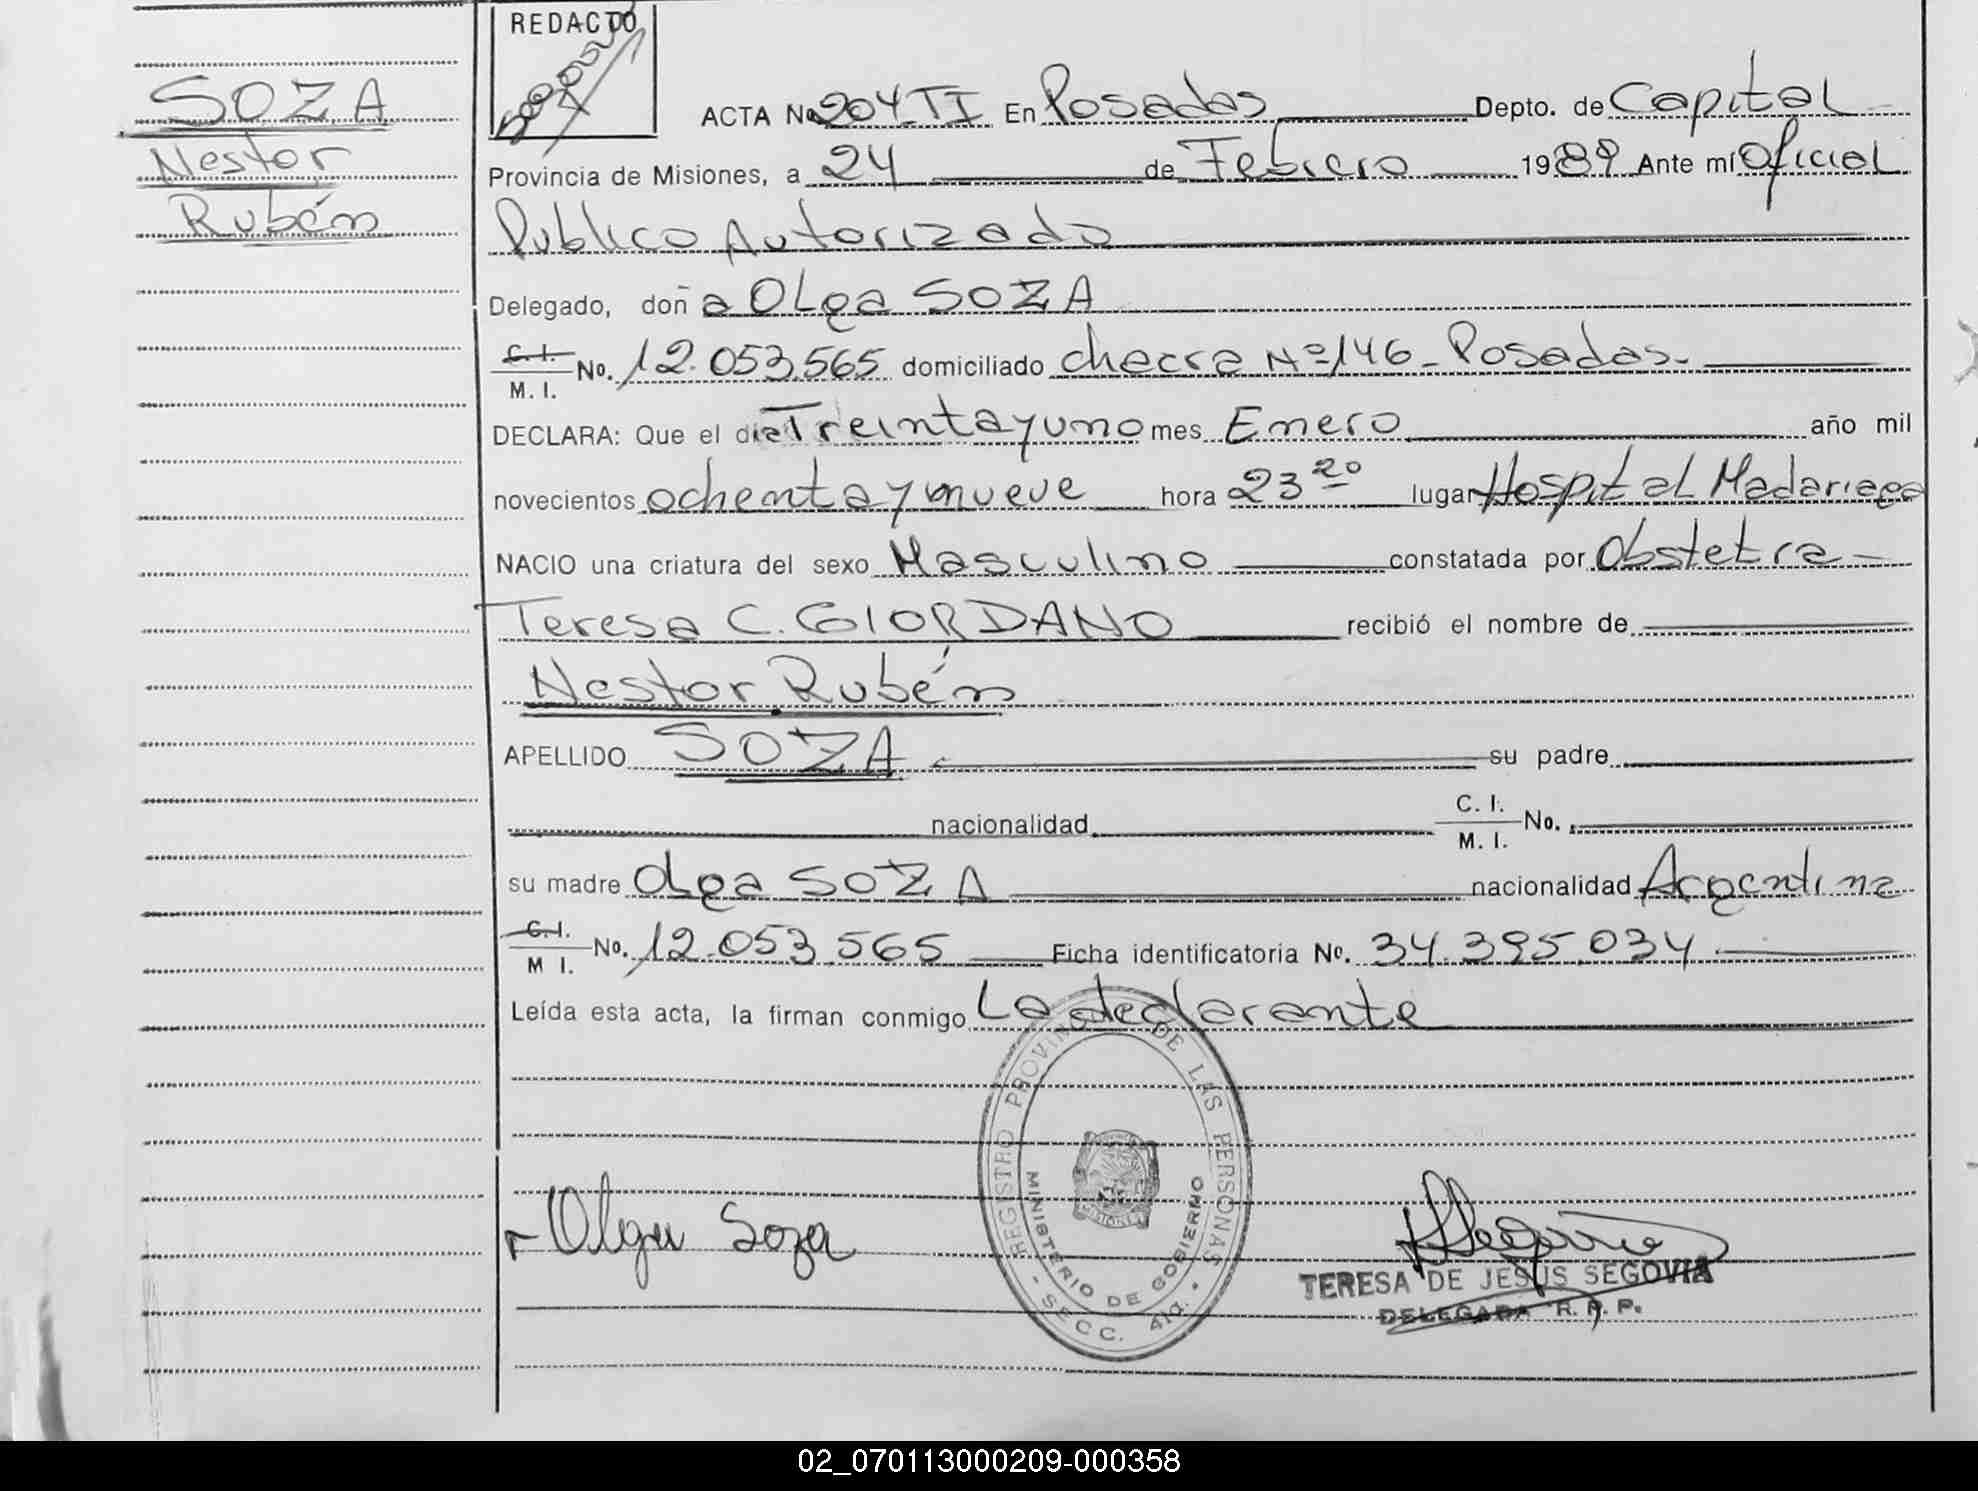 SOZA
Nestor
Rubén
REDACTÓ
ACTA No. 204 TI En Posadas Depto. de Capital
Provincia de Misiones, a 24 de Febrero 1989 Ante mí Oficial
Publico Autorizado
Delegado, doña Olga SOZA
C. I. / M. I. No. 12.053.565 domiciliado checra Nº 146 - Posadas.-
DECLARA: Que el dia Treinta y uno mes Enero año mil
novecientos ochenta y nueve hora 23 20 lugar Hospital Madariaga
NACIO una criatura del sexo Masculino constatada por Obstetra -
Teresa C. GIORDANO recibió el nombre de
Nestor Rubén
APELLIDO SOZA su padre
nacionalidad C. I. / M. I. No.
su madre Olga SOZA nacionalidad Argentina
C. I. / M I. No. 12.053.565 Ficha identificatoria No. 34.395.034
Leída esta acta, la firman conmigo La declarante
REGISTRO PROVINCIAL DE LAS PERSONAS
MINISTERIO DE GOBIERNO
MISIONES
- SECC. 41a. -
Olga Soza
TERESA DE JESUS SEGOVIA
DELEGADA R. P. P.
02_070113000209-000358